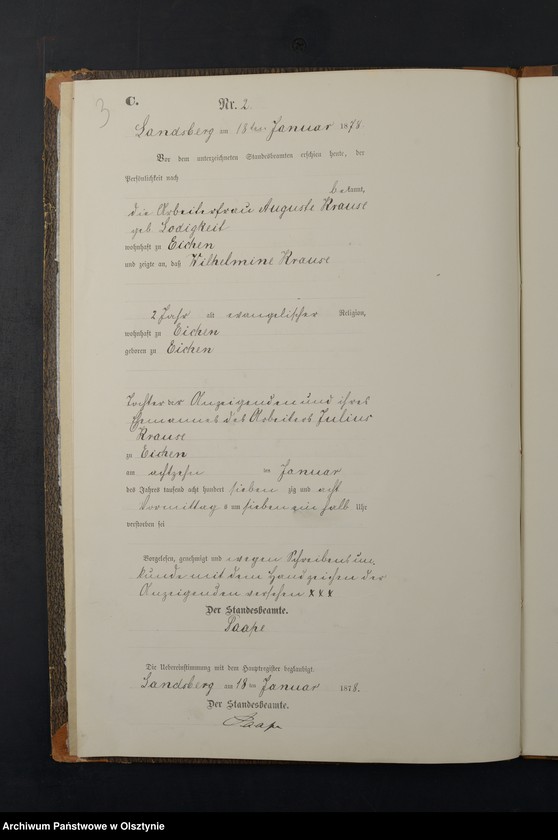 3
C.
Nr. 2
Landsberg am 18ten Januar 1878
Vor dem unterzeichneten Standesbeamten erschien heute, der
Persönlichkeit nach
bekannt,
die Arbeiterfrau Auguste Krause
geb. Lodigkeit
wohnhaft zu Eichen
und zeigte an, daß Wilhelmine Krause
2 Jahr alt evangelischer Religion,
wohnhaft zu Eichen
geboren zu Eichen
Tochter der Anzeigenden und ihres
Ehemannes des Arbeiters Julius
Krause
zu Eichen
am achtzehn ten Januar
des Jahres tausend acht hundert sieben zig und acht
Vormittags um sieben ein halb Uhr
verstorben sei
Vorgelesen, genehmigt und wegen Schreibensun-
kunde mit dem Handzeichen der
Anzeigenden versehen xxx
Der Standesbeamte.
Saape
Die Uebereinstimmung mit dem Hauptregister beglaubigt.
Landsberg am 18 ten Januar 1878.
Der Standesbeamte.
Saape
Archiwum Państwowe w Olsztynie